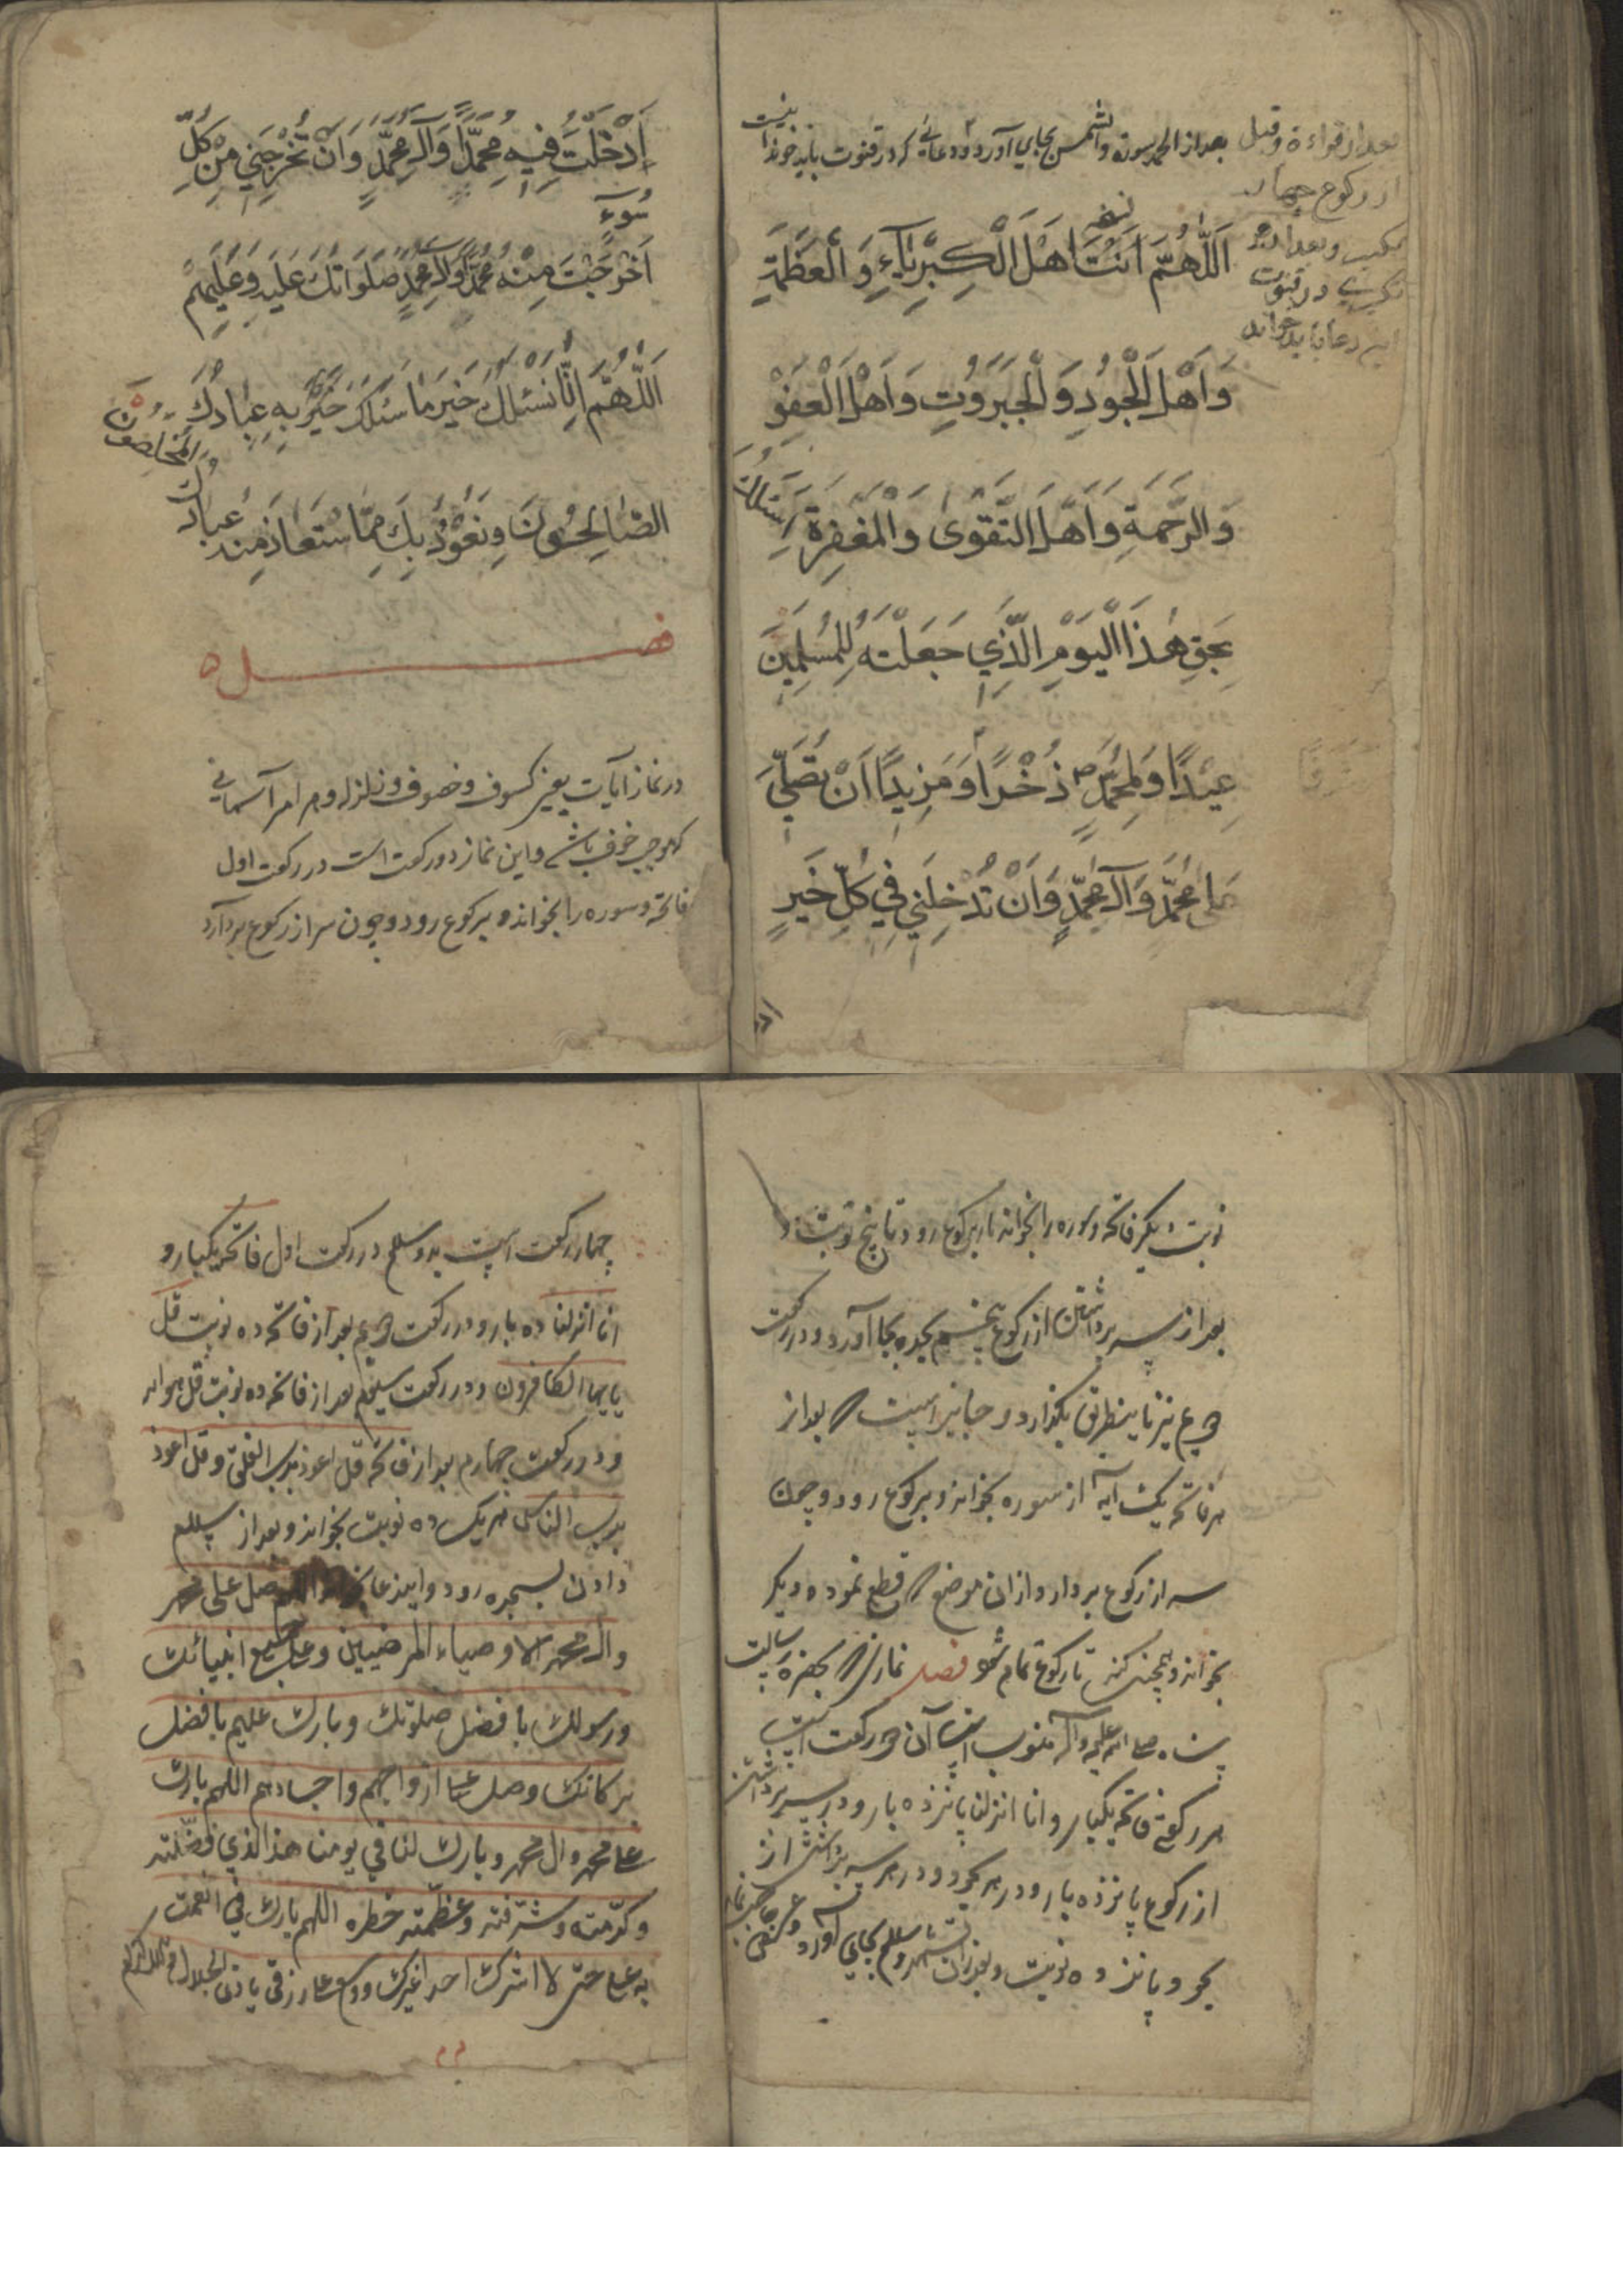 بعد از الحمد سوره والشمس بجای آورد و دعائی که در قنوت باید خواند اینست
بعد از قراءة و قبل
از رکوع چهار
تکبیر و بعد از هر
تکبیری در قنوت
این دعا باید خواند
اَللّٰهُمَّ اَنْتَ اَهْلَ الْكِبْرِيَآءِ وَ الْعَظَمَةِ
وَ اَهْلَ الْجُودِ وَ الْجَبَرُوتِ وَ اَهْلَ الْعَفْوِ
وَ الرَّحْمَةِ وَ اَهْلَ التَّقْوٰى وَ الْمَغْفِرَةِ اَسْئَلُكَ
بِحَقِّ هٰذَا الْيَوْمِ الَّذِي جَعَلْتَهُ لِلْمُسْلِمِينَ
عِيْدًا وَ لِمُحَمَّدٍ ص ذُخْرًا وَ مَزِيدًا اَنْ تُصَلِّيَ
عَلٰى مُحَمَّدٍ وَ آلِ مُحَمَّدٍ وَ اَنْ تُدْخِلَنِي فِي كُلِّ خَيْرٍ
اَدْخَلْتَ فِيهِ مُحَمَّدًا وَ آلَ مُحَمَّدٍ وَ اَنْ تُخْرِجَنِي مِنْ كُلِّ
سُوءٍ
اَخْرَجْتَ مِنْهُ مُحَمَّدًا وَ آلَ مُحَمَّدٍ صَلَوَاتُكَ عَلَيْهِ وَ عَلَيْهِمْ
اَللّٰهُمَّ اِنَّا نَسْئَلُكَ خَيْرَ مَا سَئَلَكَ بِهِ عِبَادُكَ
الصَّالِحُونَ وَ نَعُوْذُ بِكَ مِمَّا اسْتَعَاذَ مِنْهُ عِبَادُكَ
الْمُخْلَصُونَ
فصل
در نماز آیات یعنی کسوف و خسوف و زلزله و هر امر آسمانی
که موجب خوف باشد و این نماز دو رکعت است در رکعت اول
فاتحه و سوره را بخواند و برکوع رود و چون سر از رکوع بردارد
نوبت دیگر فاتحه و سوره را بخواند باز برکوع رود تا پنج نوبت و
بعد از سر برداشتن از رکوع پنجم سجده بجا آورد و در رکعت
دویم نیز باینطریق بگذارد و جایز است که بعد از
هر فاتحه یک آیه از سوره بخواند و برکوع رود و چون
سر از رکوع بردارد از ان موضع که قطع نموده دیگر
بخواند و همچنین کند تا رکوع تمام شود فصل نمازی که بحضرت رسالت
پناه صلی الله علیه و آله منسوب است آن دو رکعت است
هر رکعتی فاتحه یکبار و انا انزلنا پانزده بار و در سر برداشتن
از رکوع پانزده بار و در هر سجود و در هر سر برداشتن از
سجود پانزده نوبت و بعد از ان تشهد و سلم بجای آورد
چهار رکعت است بدو سلم در رکعت اول فاتحه یکبار و
انا انزلنا ده بار و در رکعت دویم بعد از فاتحه ده نوبت قل
یا ایها الکافرون و در رکعت سیم بعد از فاتحه ده نوبت قل هو الله
و در رکعت چهارم بعد از فاتحه قل اعوذ برب الفلق و قل اعوذ
برب الناس هر یک ده نوبت بخواند و بعد از سلم
دادن بسجده رود و این دعا بخواند اللهم صل علی محمد
وال محمد الاوصیاء المرضیین و علی جمیع انبیائک
ورسولک بافضل صلوتک و بارک علیهم بافضل
برکاتک وصل علی ارواحهم واجسادهم اللهم بارک
علی محمد وال محمد و بارک لنا فی یومنا هذا الذی فضلته
وکرمته وشرفته وعظمته خطره اللهم بارک فی انعمت
به علی حتی لا اشرک احدا غیرک ووسع علی رزقی یا ذی الجلال والاکرام